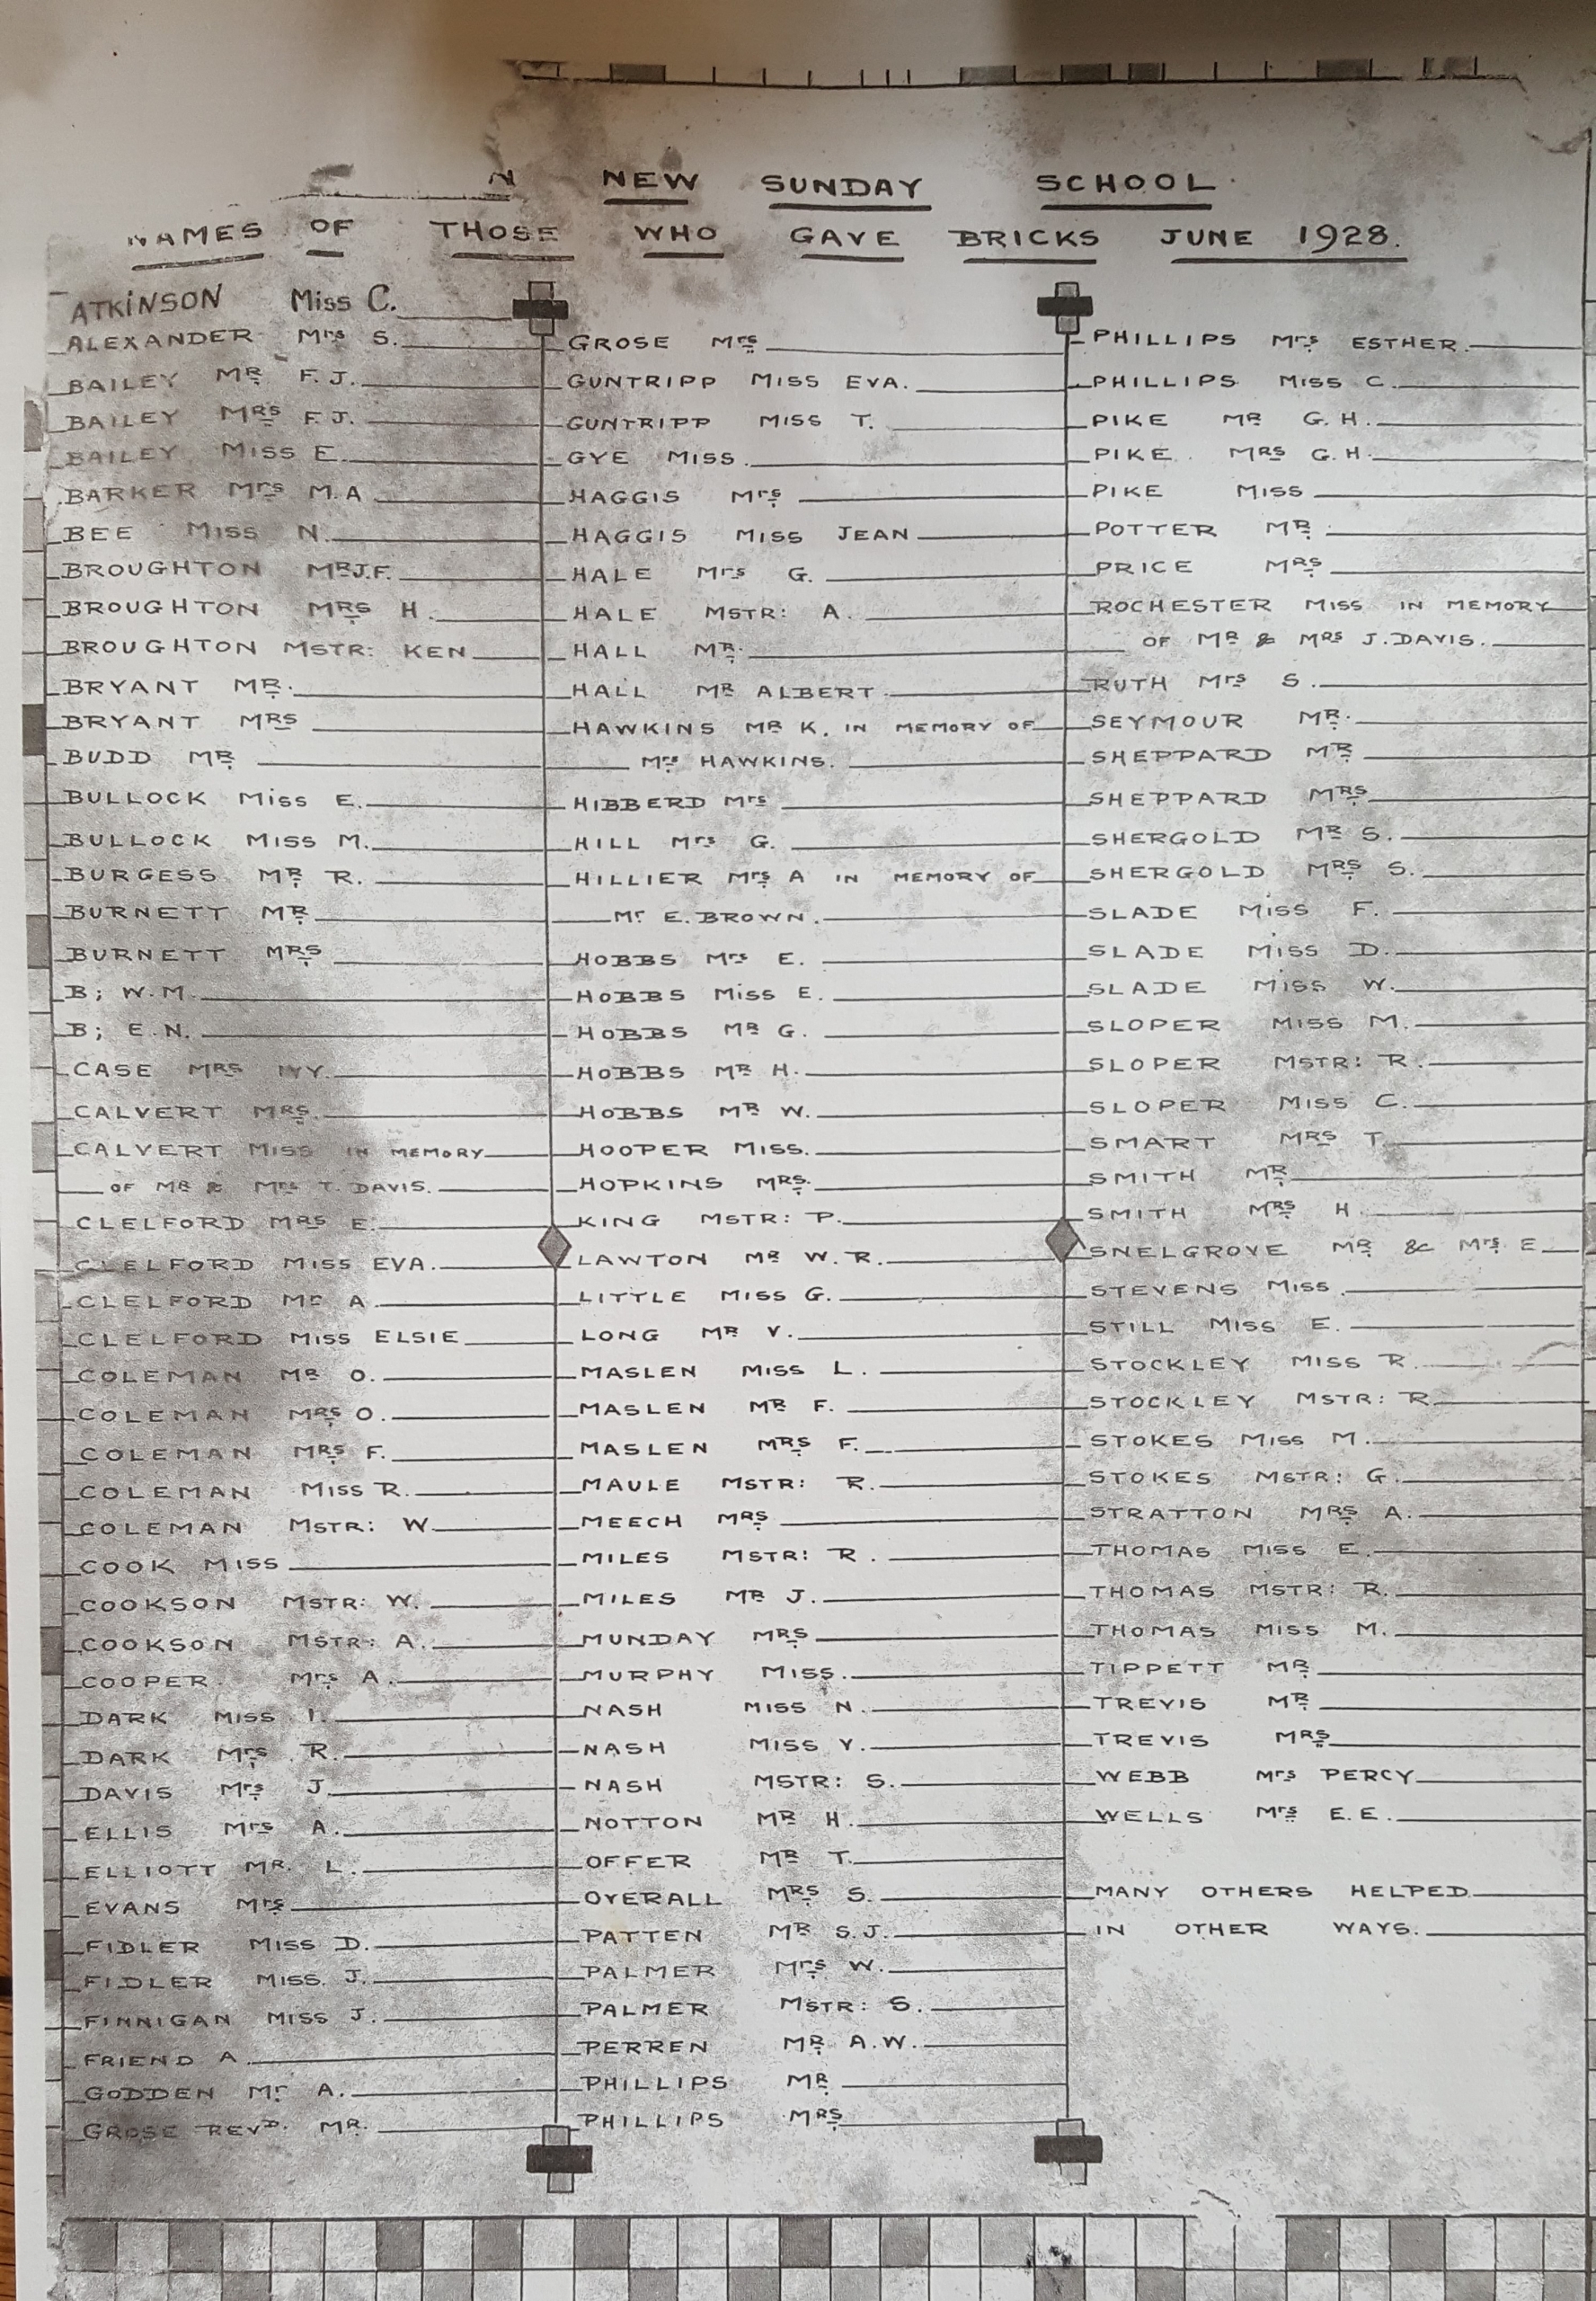 NEW SUNDAY SCHOOL
NAMES OF THOSE WHO GAVE BRICKS JUNE 1928.
ATKINSON Miss C.
ALEXANDER Mrs S.
BAILEY MR F.J.
BAILEY MRS F.J.
BAILEY MISS E.
BARKER Mrs M.A
BEE MISS N.
BROUGHTON MR J.F.
BROUGHTON MRS H.
BROUGHTON MSTR: KEN
BRYANT MR.
BRYANT MRS
BUDD MR
BULLOCK MISS E.
BULLOCK MISS M.
BURGESS MR R.
BURNETT MR
BURNETT MRS
B; W.M.
B; E.N.
CASE MRS IVY.
CALVERT MRS.
CALVERT MISS IN MEMORY
OF MR & MRS T. DAVIS.
CLELFORD MRS E.
CLELFORD MISS EVA.
CLELFORD Mr A.
CLELFORD MISS ELSIE
COLEMAN MR O.
COLEMAN MRS O.
COLEMAN MRS F.
COLEMAN MISS R.
COLEMAN MSTR: W.
COOK MISS
COOKSON MSTR: W.
COOKSON MSTR: A.
COOPER Mrs A.
DARK MISS I.
DARK Mrs R.
DAVIS Mrs J.
ELLIS Mrs A.
ELLIOTT MR. L.
EVANS Mrs
FIDLER MISS D.
FIDLER MISS. J.
FINNIGAN MISS J.
FRIEND A.
GODDEN Mr A.
GROSE REVD. MR.
GROSE Mrs
GUNTRIPP MISS EVA.
GUNTRIPP MISS T.
GYE MISS.
HAGGIS Mrs
HAGGIS MISS JEAN
HALE Mrs G.
HALE MSTR: A.
HALL MR.
HALL MR ALBERT.
HAWKINS MR K. IN MEMORY OF
Mrs HAWKINS.
HIBBERD Mrs
HILL Mrs G.
HILLIER Mrs A IN MEMORY OF
Mr E. BROWN.
HOBBS Mrs E.
HOBBS MISS E.
HOBBS MR G.
HOBBS MR H.
HOBBS MR W.
HOOPER MISS.
HOPKINS MRS.
KING MSTR: P.
LAWTON MR W.R.
LITTLE MISS G.
LONG MR V.
MASLEN MISS L.
MASLEN MR F.
MASLEN MRS F.
MAULE MSTR: R.
MEECH MRS
MILES MSTR: R.
MILES MR J.
MUNDAY MRS
MURPHY MISS.
NASH MISS N.
NASH MISS V.
NASH MSTR: S.
NOTTON MR H.
OFFER MR T.
OVERALL MRS S.
PATTEN MR S.J.
PALMER Mrs W.
PALMER MSTR: S.
PERREN MR A.W.
PHILLIPS MR
PHILLIPS MRS
PHILLIPS Mrs ESTHER.
PHILLIPS MISS C.
PIKE MR G.H.
PIKE. MRS G.H.
PIKE MISS
POTTER MR
PRICE MRS
ROCHESTER MISS IN MEMORY
OF MR & MRS J. DAVIS.
RUTH Mrs S.
SEYMOUR MR.
SHEPPARD MR
SHEPPARD MRS
SHERGOLD MR S.
SHERGOLD MRS S.
SLADE MISS F.
SLADE MISS D.
SLADE MISS W.
SLOPER MISS M.
SLOPER MSTR: R.
SLOPER MISS C.
SMART MRS T.
SMITH MR
SMITH MRS H.
SNELGROVE MR & Mrs E
STEVENS MISS.
STILL MISS E.
STOCKLEY MISS R.
STOCKLEY MSTR: R.
STOKES MISS M.
STOKES MSTR: G.
STRATTON MRS A.
THOMAS MISS E.
THOMAS MSTR: R.
THOMAS MISS M.
TIPPETT MR
TREVIS MR
TREVIS MRS
WEBB Mrs PERCY
WELLS Mrs E.E.
MANY OTHERS HELPED
IN OTHER WAYS.